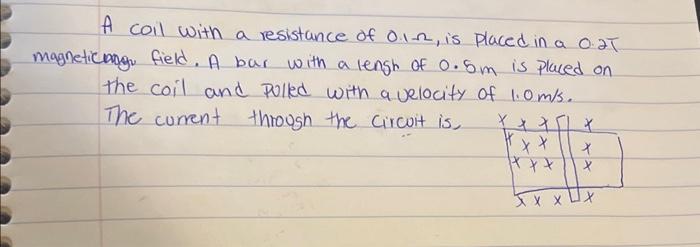 A coil with a resistance of 0.1Ω, is placed in a 0.2T
magnetic field. A bar with a lengh of 0.5m is placed on
the coil and polled with a velocity of 1.0m/s.
The current through the circuit is
x x x x
x x x x
x x x x
x x x x